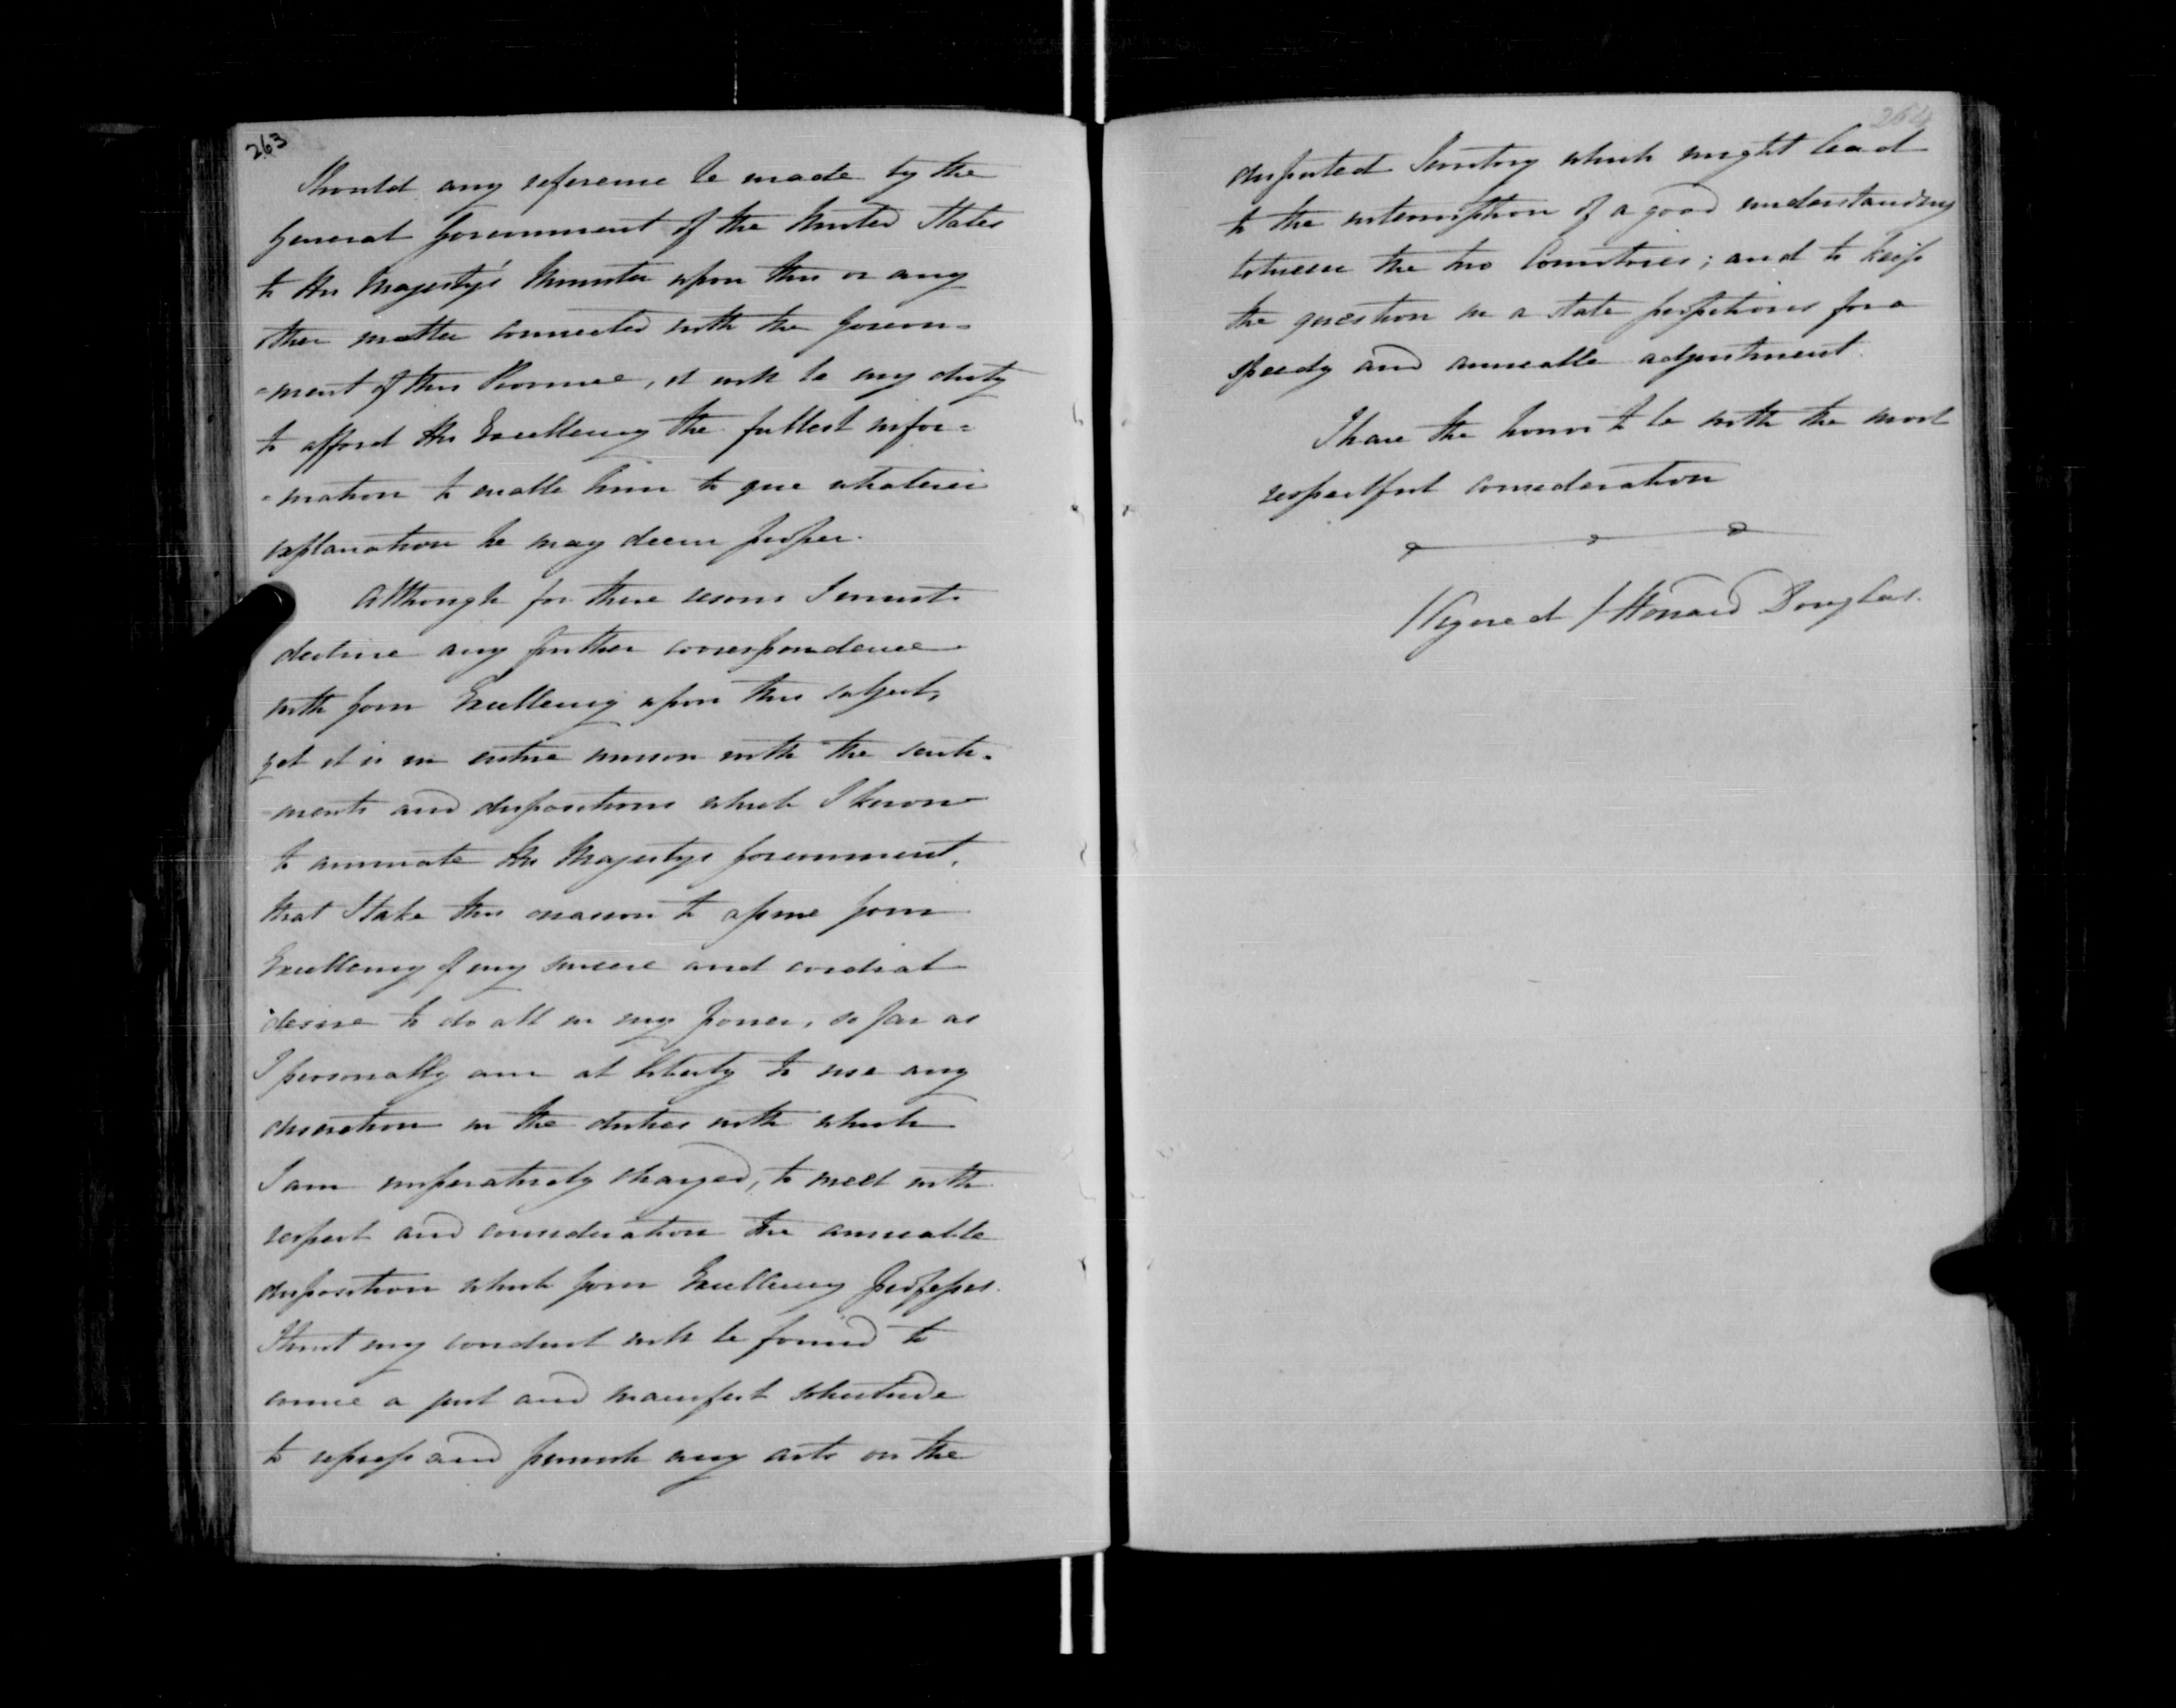 263
Should any reference be made by the
General Government of the United States
to His Majesty's Minister upon this or any
other matter connected with the Govern=
=ment of this Province, it will be my duty
to afford His Excellency the fullest infor=
=mation to enable him to give whatever
explanation he may deem proper.
Although for these reasons I must
decline any further correspondence
with your Excellency upon this subject,
yet it is in entire unison with the senti=
=ments and dispositions which I know
to animate His Majestys Government,
that I take this occasion to assure your
Excellency of my sincere and cordial
desire to do all in my power, so far as
I personally am at liberty to use any
discretion in the duties with which
I am imperatively charged, to meet with
respect and consideration the amicable
disposition which your Excellency professes.
I trust my conduct will be found to
evince a just and manifest solicitude
to repress and punish any acts on the
264
disputed Territory which might lead
to the interruption of a good understanding
between the two Countries; and to keep
the question in a state propitious for a
speedy and amicable adjustment.
I have the honor to be with the most
respectful consideration
/Signed/ Howard Douglas.